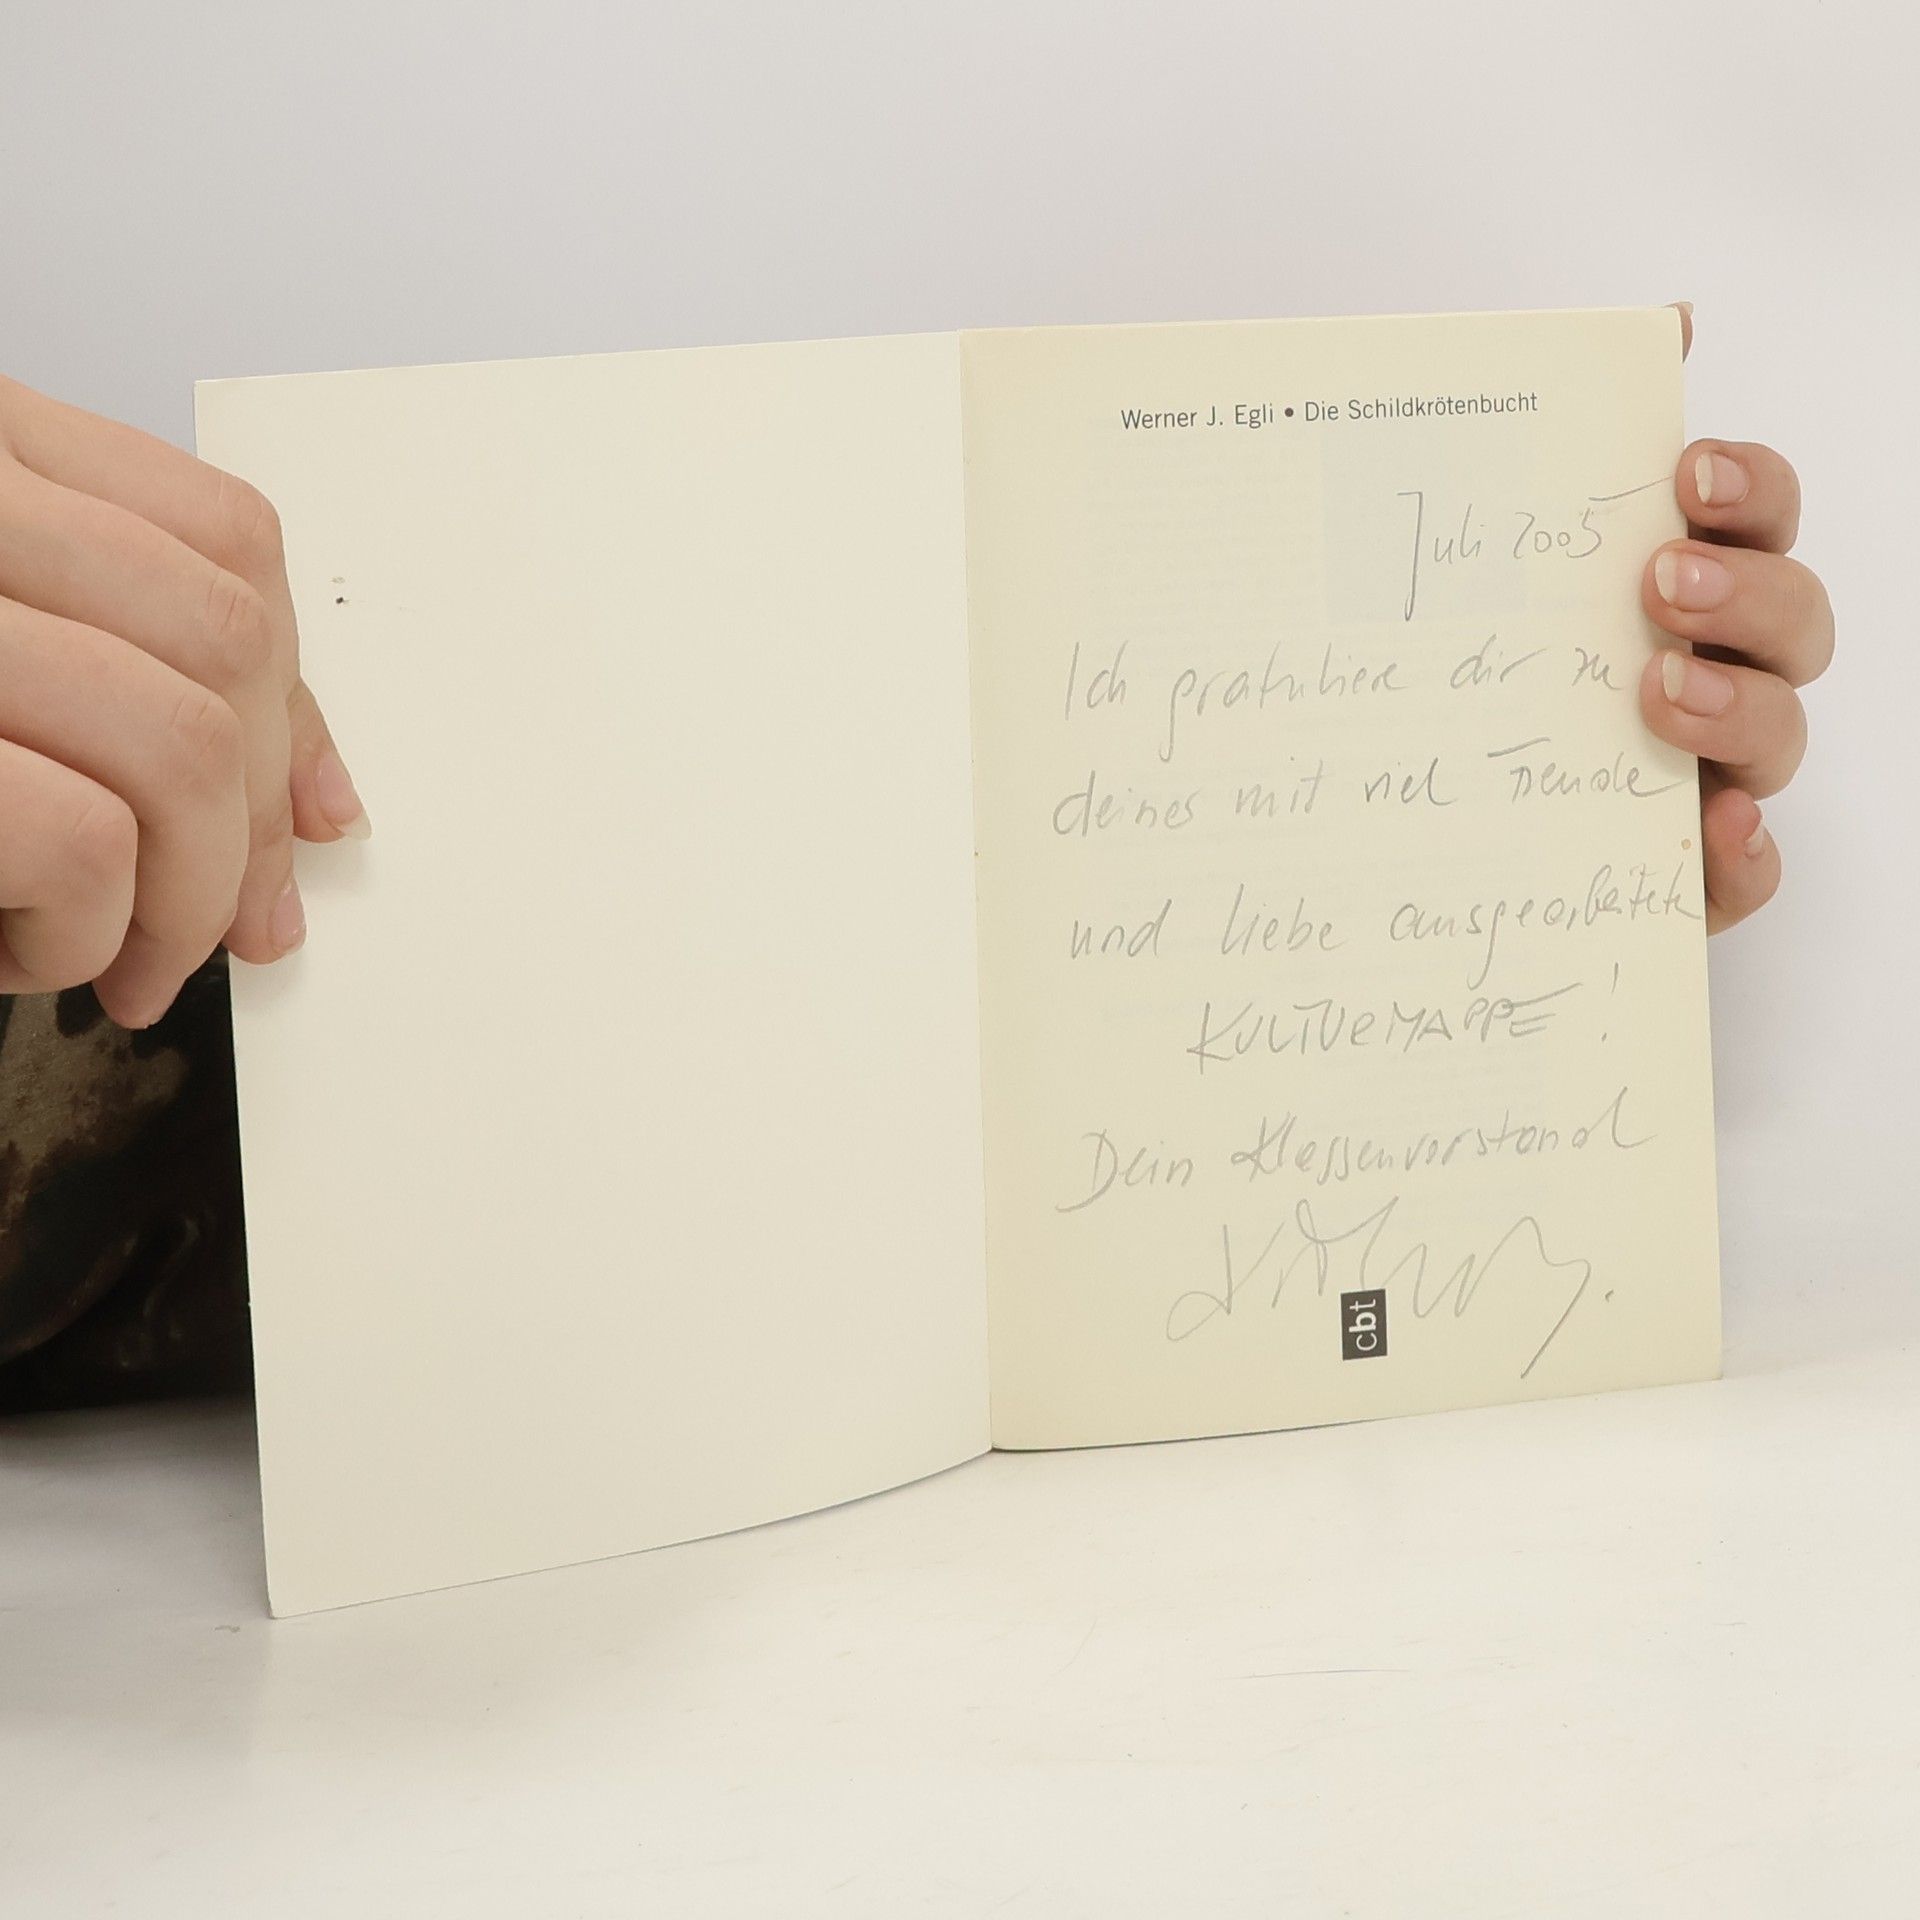 Werner J. Egli • Die Schildkrötenbucht
Juli 2005
Ich gratuliere dir zu
deines mit viel Freude
und Liebe ausgearbeitete
KULTURMAPPE!
Dein Klassenvorstand
cbt